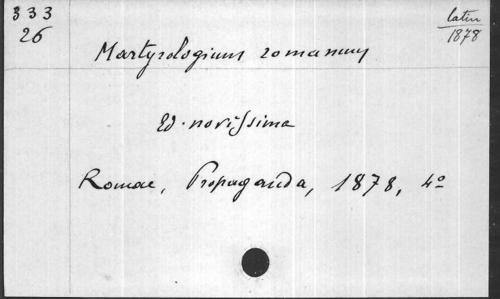 333
26
latin
1878
Martyrologium romanum
Ed. novissima
Romae, Propaganda, 1878, 4º